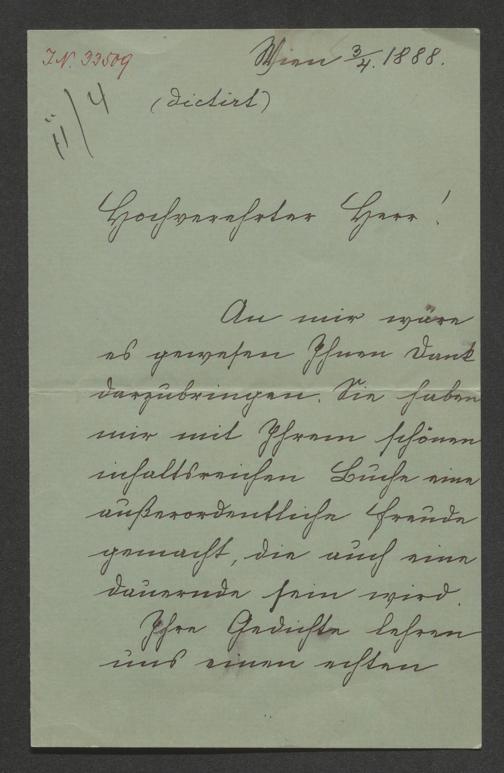 I.N. 33509
Wien 3/4. 1888.
(dictirt)
ü/4
Hochverehrter Herr!
An mir wäre
es gewesen Ihnen Dank
darzubringen. Sie haben
mir mit Ihrem schönen
inhaltsreichen Buche eine
außerordentliche Freude
gemacht, die auch eine
dauernde sein wird.
Ihre Gedichte lehren
uns einen echten